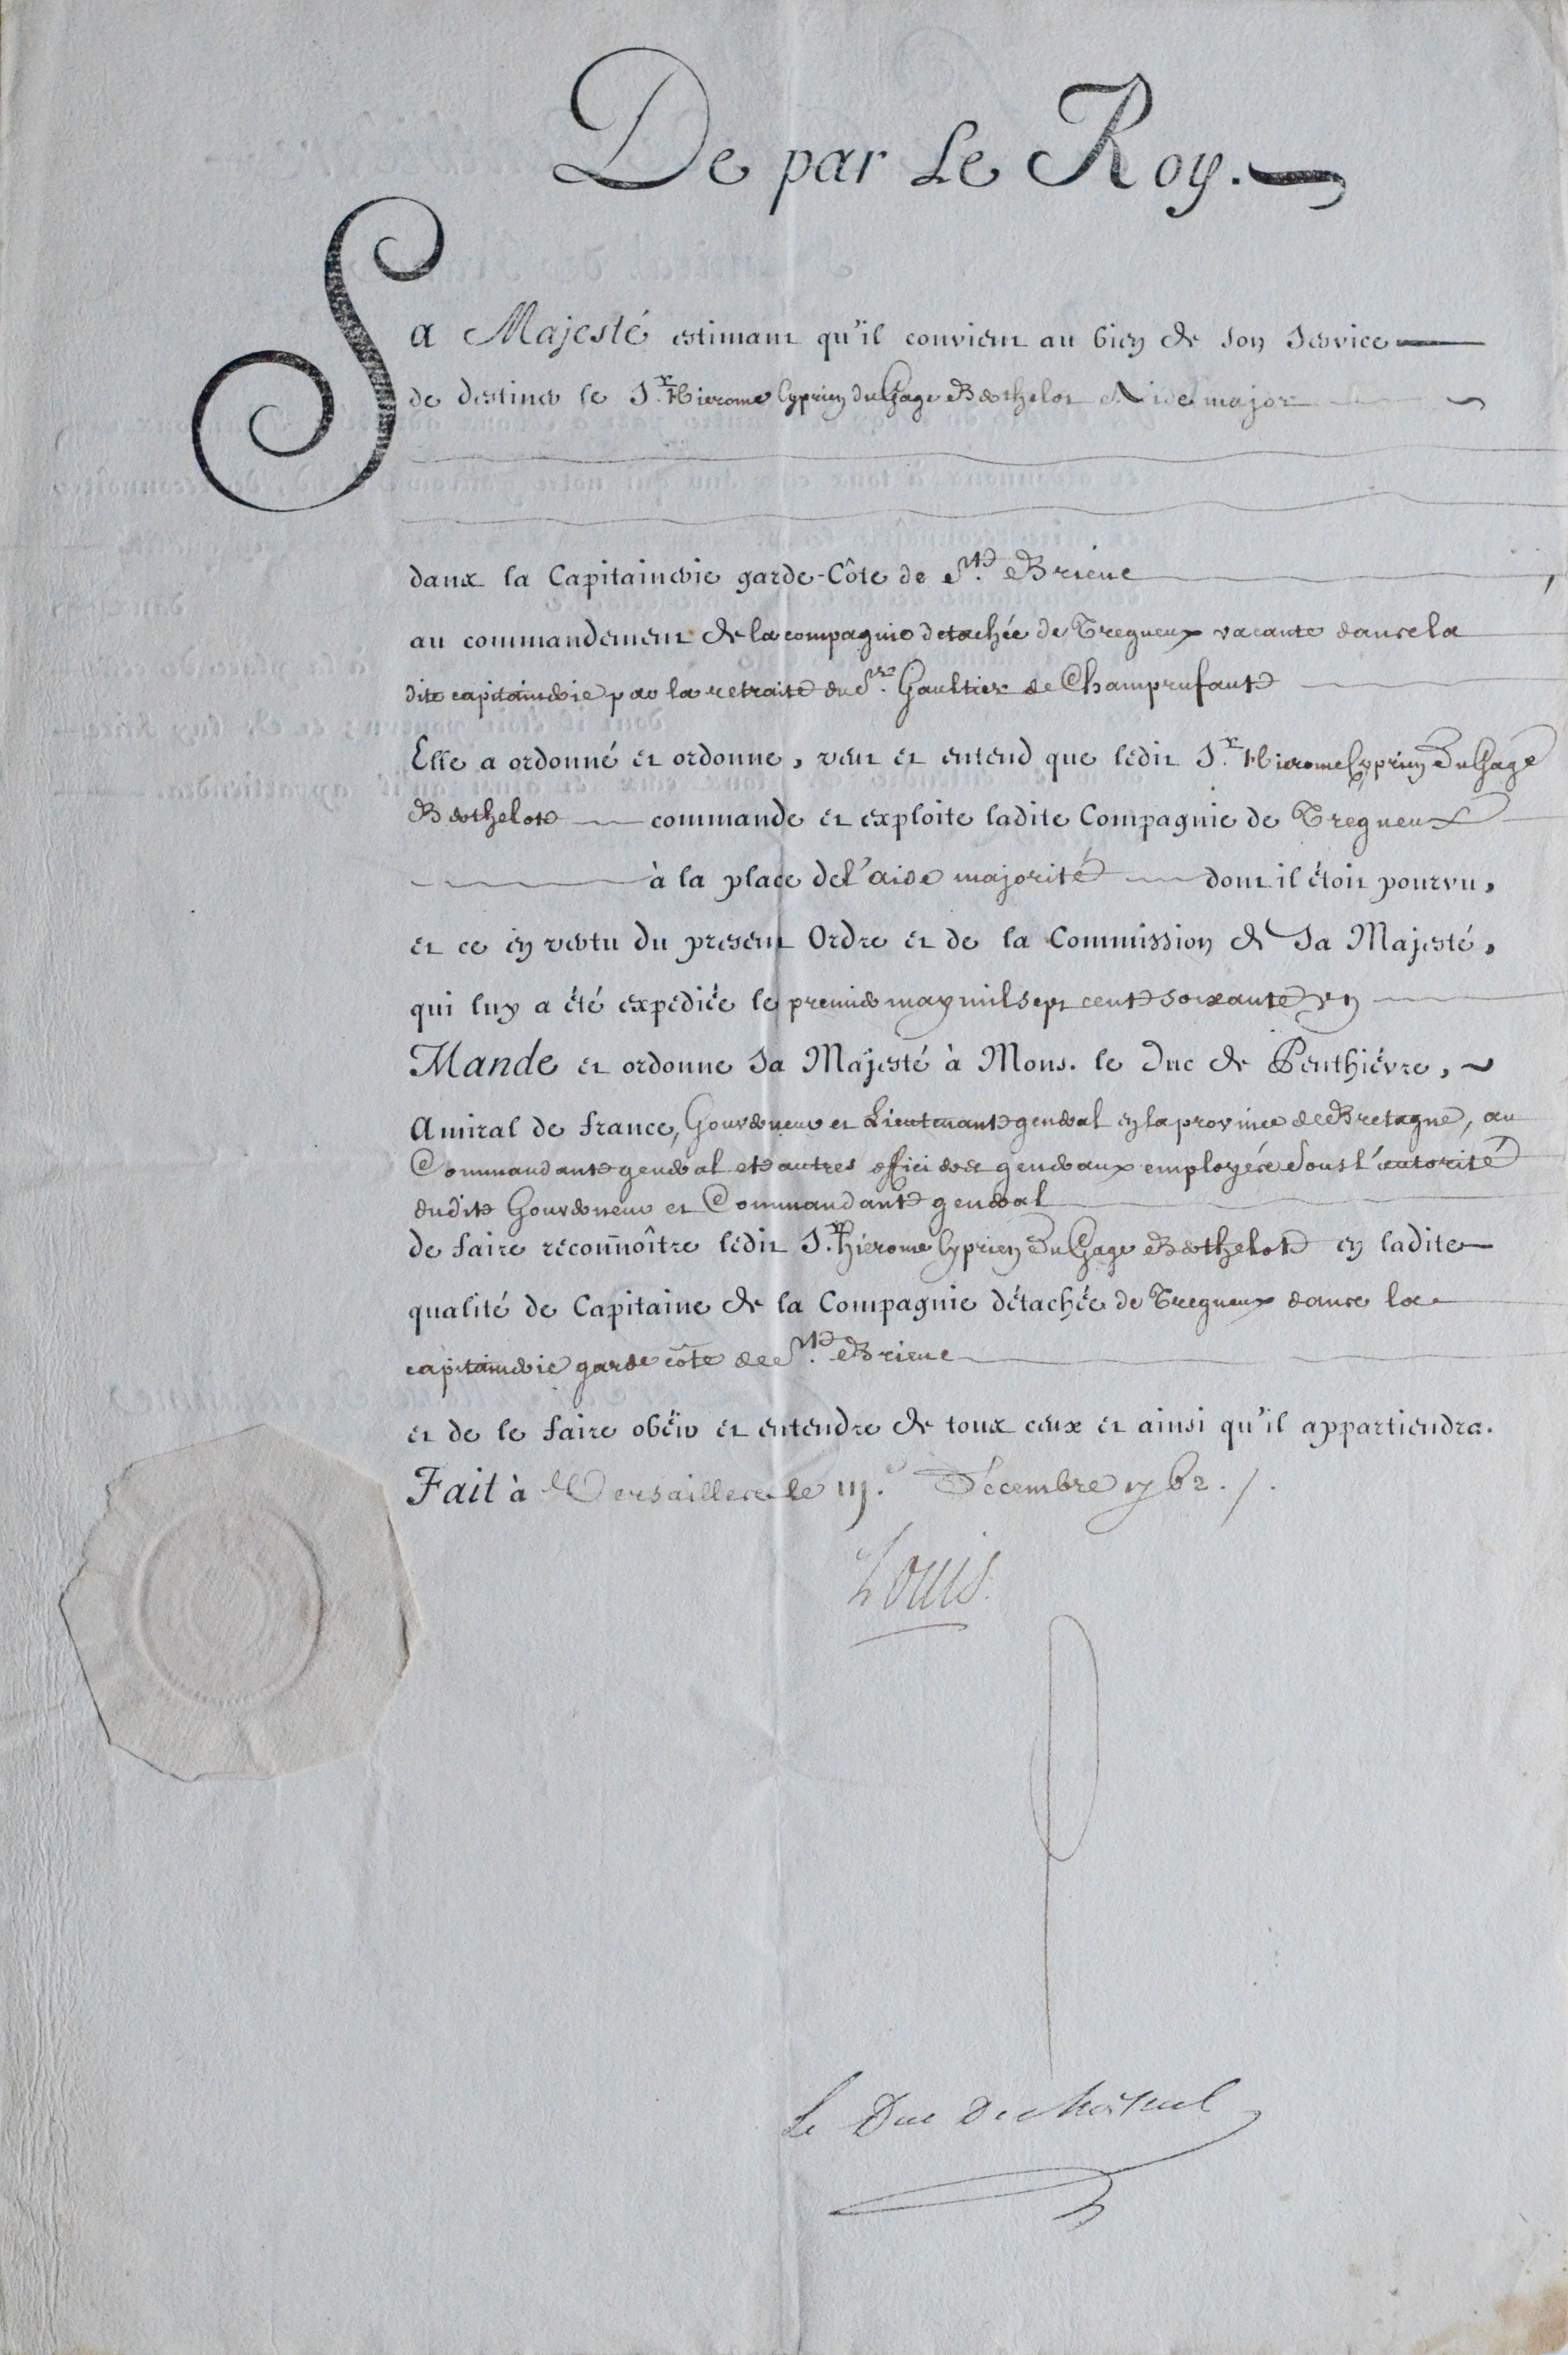 De par Le Roy.
Sa Majesté estimant qu'il convient au bien de son service
de destiner le S.r Hierome Cyprien du Gage Berthelot Aide major
dans la Capitainerie garde-Côte de S.t Brieuc
au commandement de la compagnie detachée de Tregueux vacante dans la
dite capitainerie par la retraite du S.r Gaultier de Champrufant
Elle a ordonné et ordonne, veut et entend que ledit S.r Hierome Cyprien Du Gage
Berthelot commande et exploite ladite Compagnie de Tregueux
à la place de l'aide majorité dont il étoit pourvu,
et ce en vertu du present Ordre et de la Commission de Sa Majesté,
qui luy a été expédiée le premier may mil sept cent soixante un
Mande et ordonne Sa Majesté à Mons. le Duc de Penthiévre,
Amiral de france, Gouverneur et Lieutenant general en la province de Bretagne, au
Commandant general et autres officiers generaux employés sous l'autorité
dudit Gouverneur et Commandant general
de faire reconnoître ledit S.r hierome Cyprien Du Gage Berthelot en ladite
qualité de Capitaine de la Compagnie détachée de Tregueux dans la
capitainerie garde côte de S.t Brieuc
et de le faire obéir et entendre de tous ceux et ainsi qu'il appartiendra.
Fait à Versailles le iij.e Décembre 1762.
Louis
Le Duc De choiseul